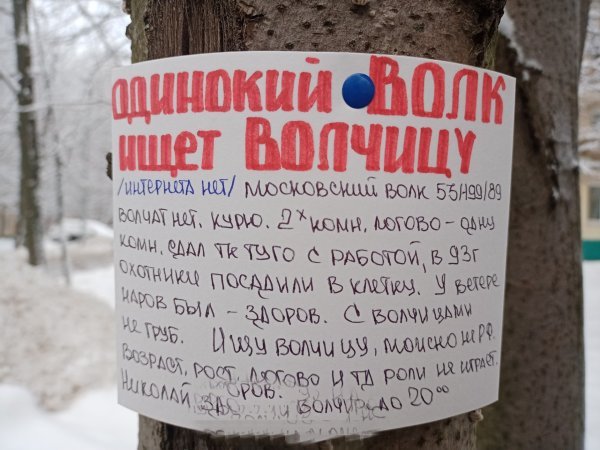 ОДИНОКИЙ ВОЛК
ИЩЕТ ВОЛЧИЦУ
/ИНТЕРНЕТА НЕТ/ МОСКОВСКИЙ ВОЛК 55/199/89
ВОЛЧАТ НЕТ. КУРЮ. 2Х КОМН. ЛОГОВО - ОДНУ
КОМН. СДАЛ ТК ТУГО С РАБОТОЙ, В 93Г
ОХОТНИКИ ПОСАДИЛИ В КЛЕТКУ. У ВЕТЕРЕ
НАРОВ БЫЛ - ЗДОРОВ. С ВОЛЧИЦАМИ
НЕ ГРУБ. ИЩУ ВОЛЧИЦУ, МОЖНО НЕ РФ.
ВОЗРАСТ, РОСТ, ЛОГОВО И ТД РОЛИ НЕ ИГРАЕТ.
НИКОЛАЙ ДО 20⁰⁰